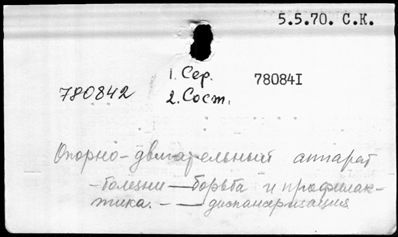 5.5.70. С.К.
1. Сер. 78084I
780842 2. Сост.
Опорно-двигательный аппарат
-болезни — борьба и профилак-
тика. — диспансеризация